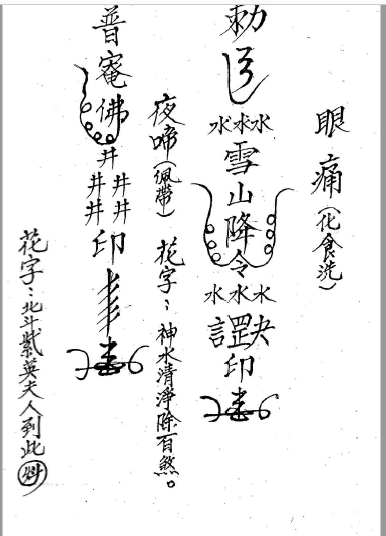 眼痛(化食洗)
勅
水水水
雪山降令
水水水
印
夜啼(佩帶) 花字：神水清淨除百煞。
普庵佛
井
井井
井井
印
花字：北斗紫英夫人到此